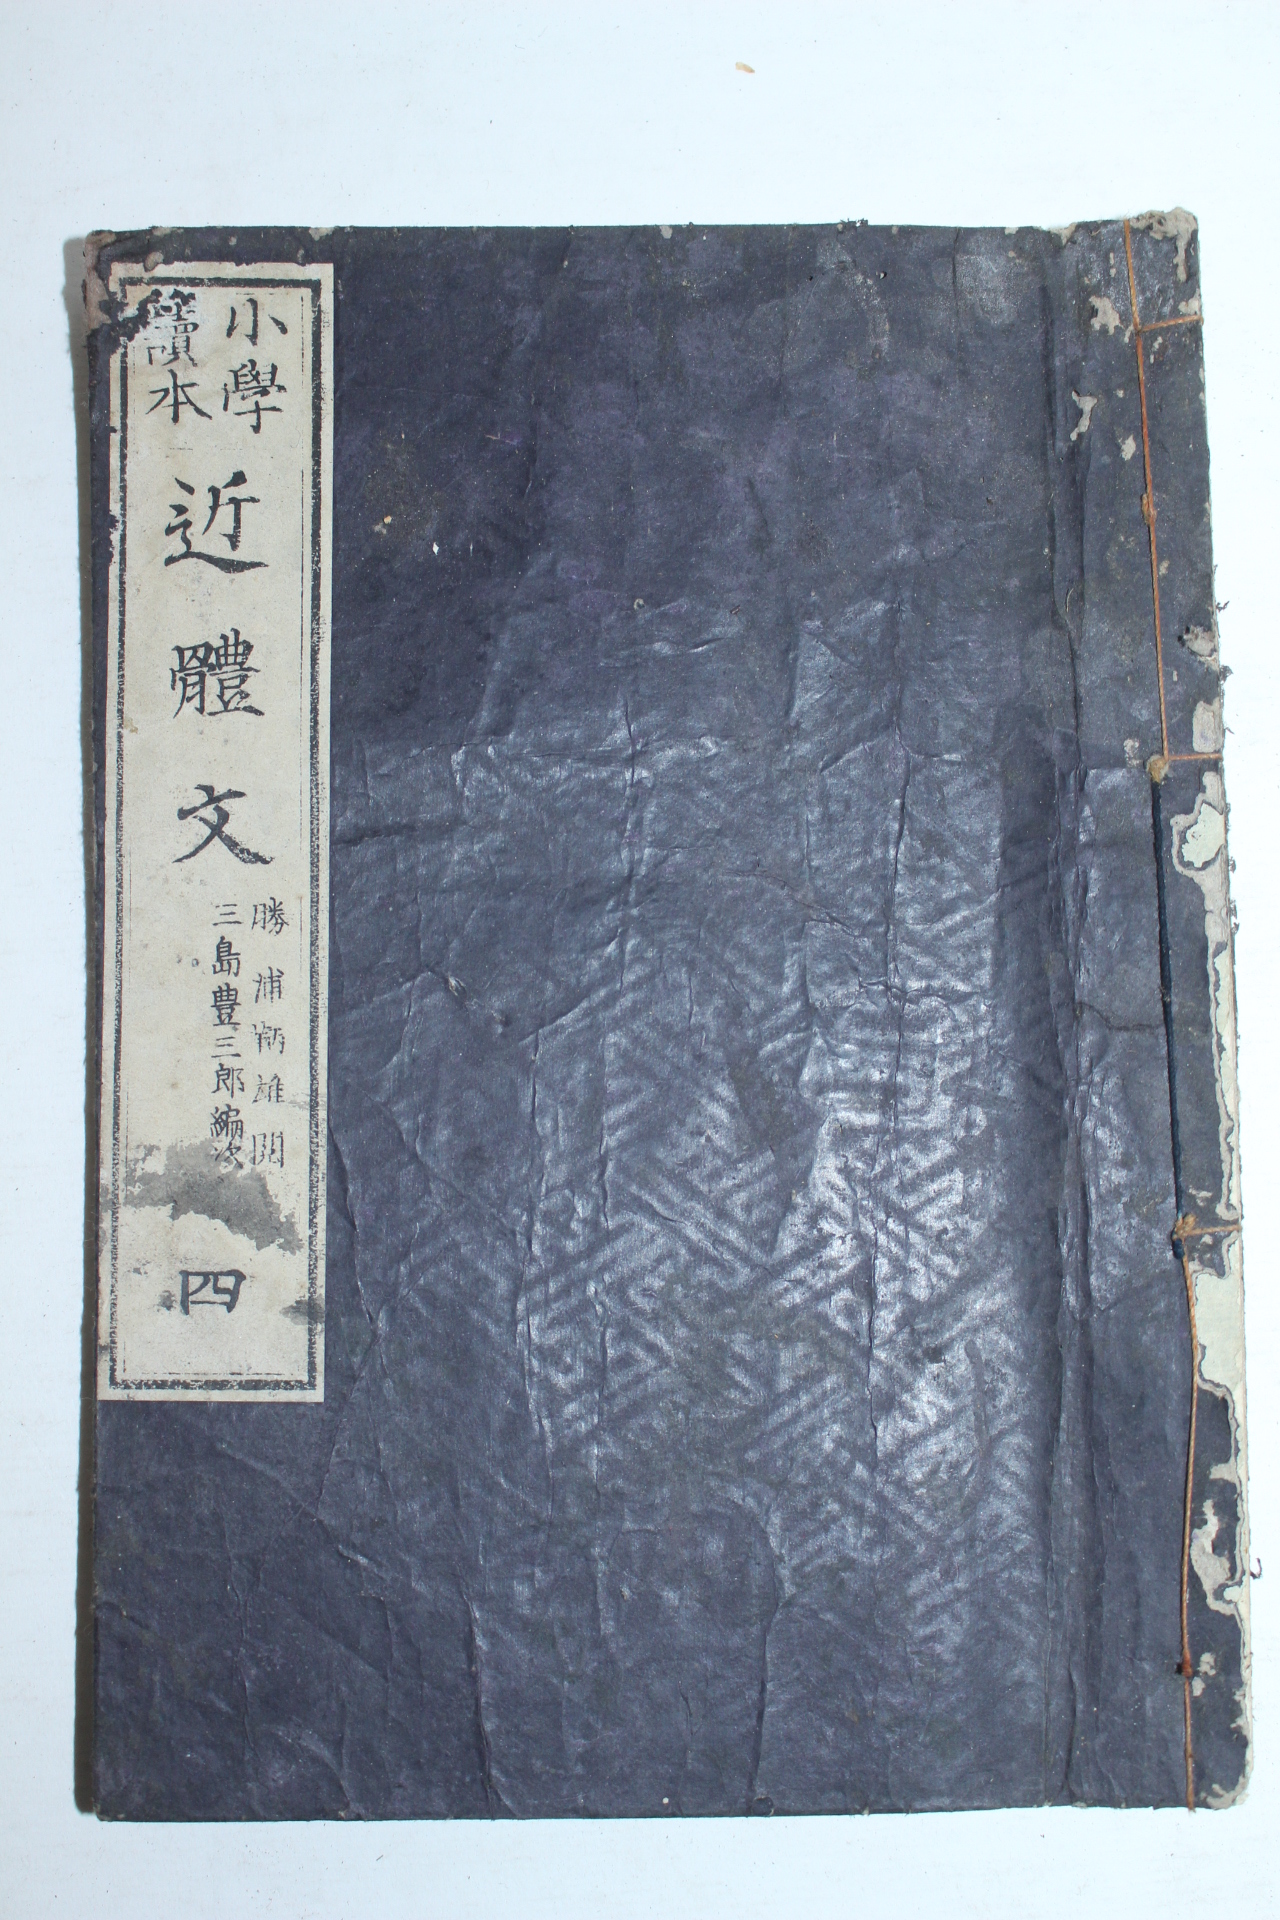 小學
讀本
近體文
勝浦鞆雄閲
三島豊三郎編次
四